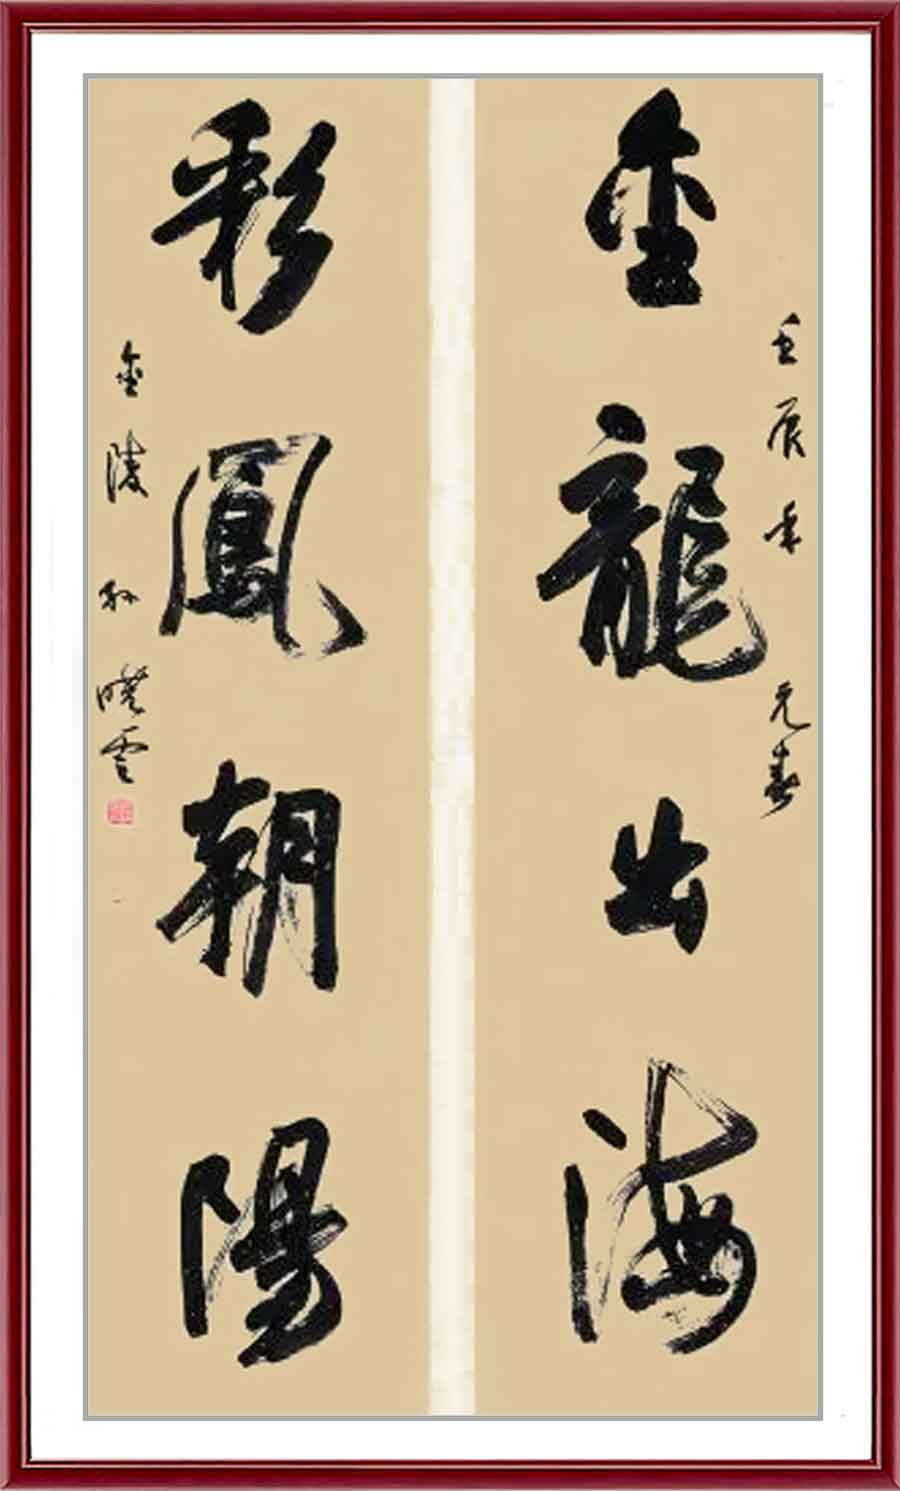 壬辰年 元春
金龍出海
彩鳳朝陽
金陵 孙曉雲